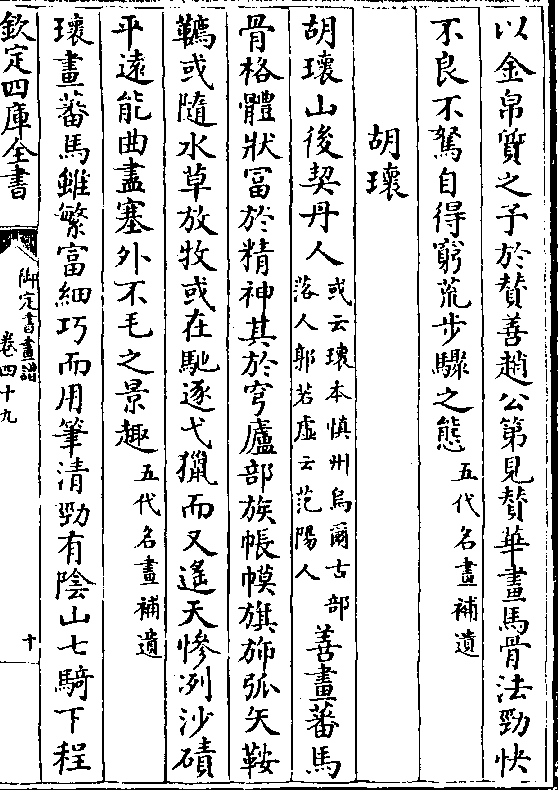 以金帛質之予於贊善趙公第見贊華畫馬骨法勁快
不良不駑自得窮荒步驟之態五代名畫補遺
胡瓌
胡瓌山後契丹人或云瓌本慎州烏爾古部落人郭若虛云范陽人善畫蕃馬
骨格體狀冨於精神其於穹廬部族帳幙旗斾弧矢鞍
韉或隨水草放牧或在馳逐弋獵而又遙天慘冽沙磧
平遠能曲盡塞外不毛之景趣五代名畫補遺
瓌畫蕃馬雖繁富細巧而用筆清勁有陰山七騎下程
欽定四庫全書
御定書畫譜
卷四十九
十